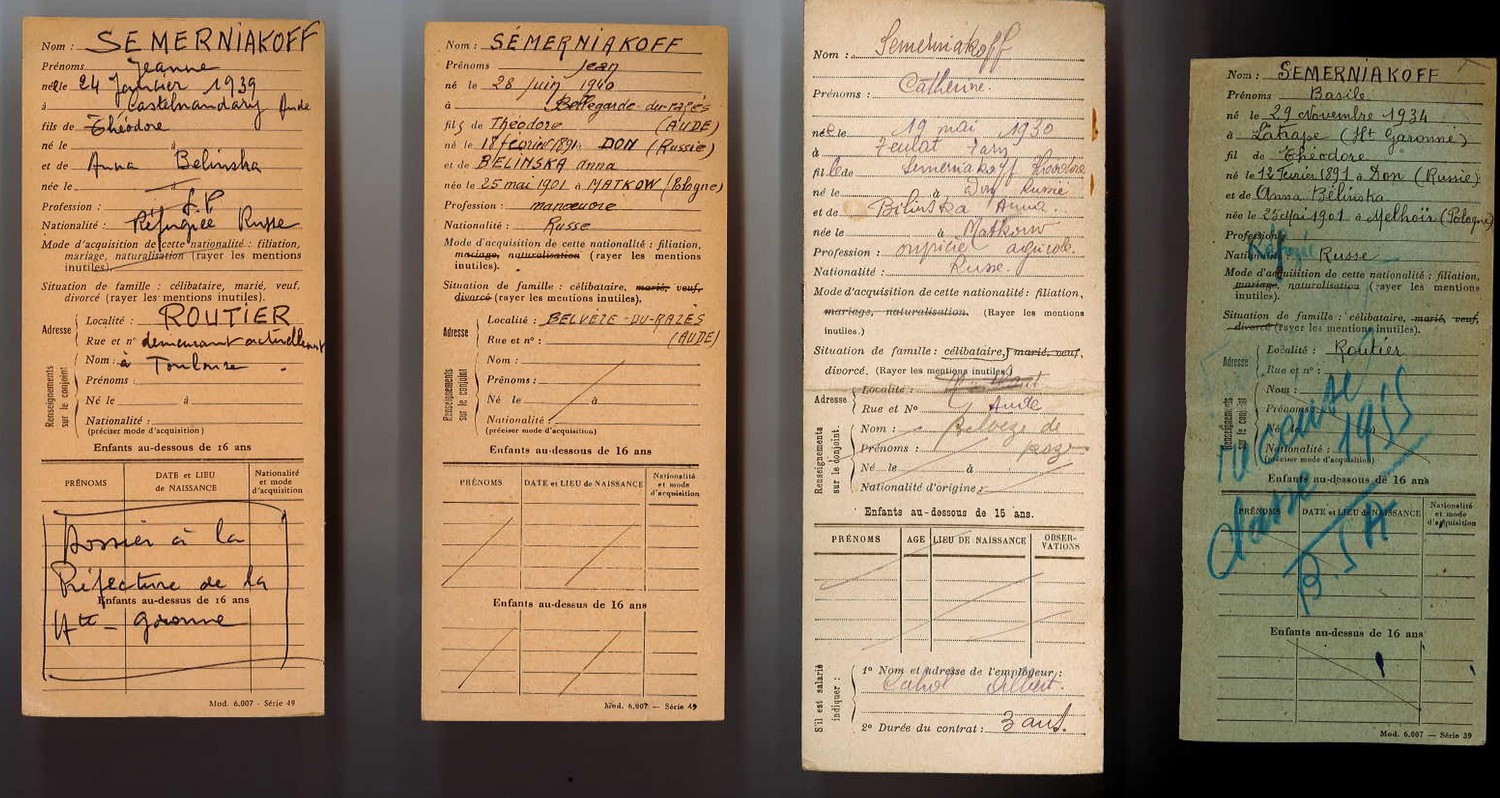 Nom : SEMERNIAKOFF
Prénoms Jeanne
née le 24 Janvier 1939
à Castelnaudary Aude
fils de Théodore
né le à
et de Anna Belinska
née le à
Profession : S.P
Nationalité : Réfugiée Russe
Mode d'acquisition de cette nationalité : filiation,
mariage, naturalisation (rayer les mentions
inutiles).
Situation de famille : célibataire, marié, veuf,
divorcé (rayer les mentions inutiles).
Adresse
Localité : ROUTIER
Rue et n° demeurant actuellement
Renseignements sur le conjoint
Nom : à Toulouse .
Prénoms :
Né le à
Nationalité :
(préciser mode d'acquisition)
Enfants au-dessous de 16 ans
PRÉNOMS
DATE et LIEU de NAISSANCE
Nationalité et mode d'acquisition
Dossier à la
Préfecture de la
Enfants au-dessus de 16 ans
Hte - Garonne
Mod. 6.007 - Série 49
Nom : SÉMERNIAKOFF
Prénoms Jean
né le 28 juin 1940
à Bellegarde-du-razés
fils de Théodore (AUDE)
né le 18 février 1891 à DON (Russie)
et de BELINSKA anna
née le 25 mai 1901 à MATKOW (Pologne)
Profession : manœuvre
Nationalité : Russe
Mode d'acquisition de cette nationalité : filiation,
mariage, naturalisation (rayer les mentions
inutiles).
Situation de famille : célibataire, marié, veuf,
divorcé (rayer les mentions inutiles).
Adresse
Localité : BELVÈZE-DU-RAZÈS
Rue et n° : (AUDE)
Renseignements sur le conjoint
Nom :
Prénoms :
Né le à
Nationalité :
(préciser mode d'acquisition)
Enfants au-dessous de 16 ans
PRÉNOMS
DATE et LIEU de NAISSANCE
Nationalité et mode d'acquisition
Enfants au-dessus de 16 ans
Mod. 6.007 — Série 49
Nom : Semerniakoff
Prénoms : Catherine.
née le 19 mai 1930
à
fille de Semerniakoff Théodore
né le à Don Russie
et de Bélinska Anna.
née le à Matkow
Profession : agricole.
Nationalité : Russe.
Mode d'acquisition de cette nationalité : filiation,
mariage, naturalisation. (Rayer les mentions
inutiles.)
Situation de famille : célibataire, marié, veuf,
divorcé. (Rayer les mentions inutiles.)
Adresse
Localité :
Rue et N° Aude
Renseignements sur le conjoint.
Nom : Belvèze de
Prénoms :
Né le à
Nationalité d'origine :
Enfants au-dessous de 15 ans.
PRÉNOMS
AGE
LIEU DE NAISSANCE
OBSERVATIONS
S'il est salarié indiquer :
1° Nom et adresse de l'employeur :
2° Durée du contrat : 3 ans.
Nom : SEMERNIAKOFF
Prénoms Basile
né le 29 Novembre 1934
à Latrape (Ht Garonne)
fil de Théodore
né le 12 Février 1891 à Don (Russie)
et de Anna Bélinska
née le 25 Mai 1901 à (Pologne)
Profession
Nationalité Réfugié Russe
Mode d'acquisition de cette nationalité : filiation,
mariage, naturalisation (rayer les mentions
inutiles).
Situation de famille : célibataire, marié, veuf,
divorcé (rayer les mentions inutiles).
Adresse
Localité : Routier
Rue et n° :
Renseignements sur le conjoint
Nom :
Prénoms :
Né le à
Nationalité :
(préciser mode d'acquisition)
Enfants au-dessous de 16 ans
PRÉNOMS
DATE et LIEU de NAISSANCE
Nationalité et mode d'acquisition
Classe 1955
Enfants au-dessus de 16 ans
Mod. 6.007 — Série 39